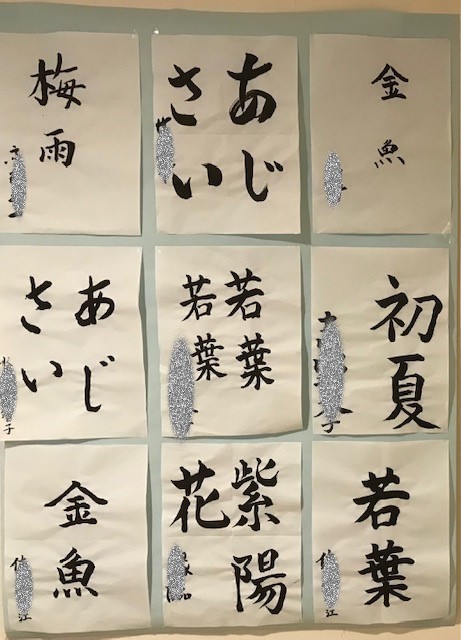 梅雨
あじ
さい
金魚
あじ
さい
若葉
若葉
子
初夏
子
金魚
江
紫陽
花
若葉
江